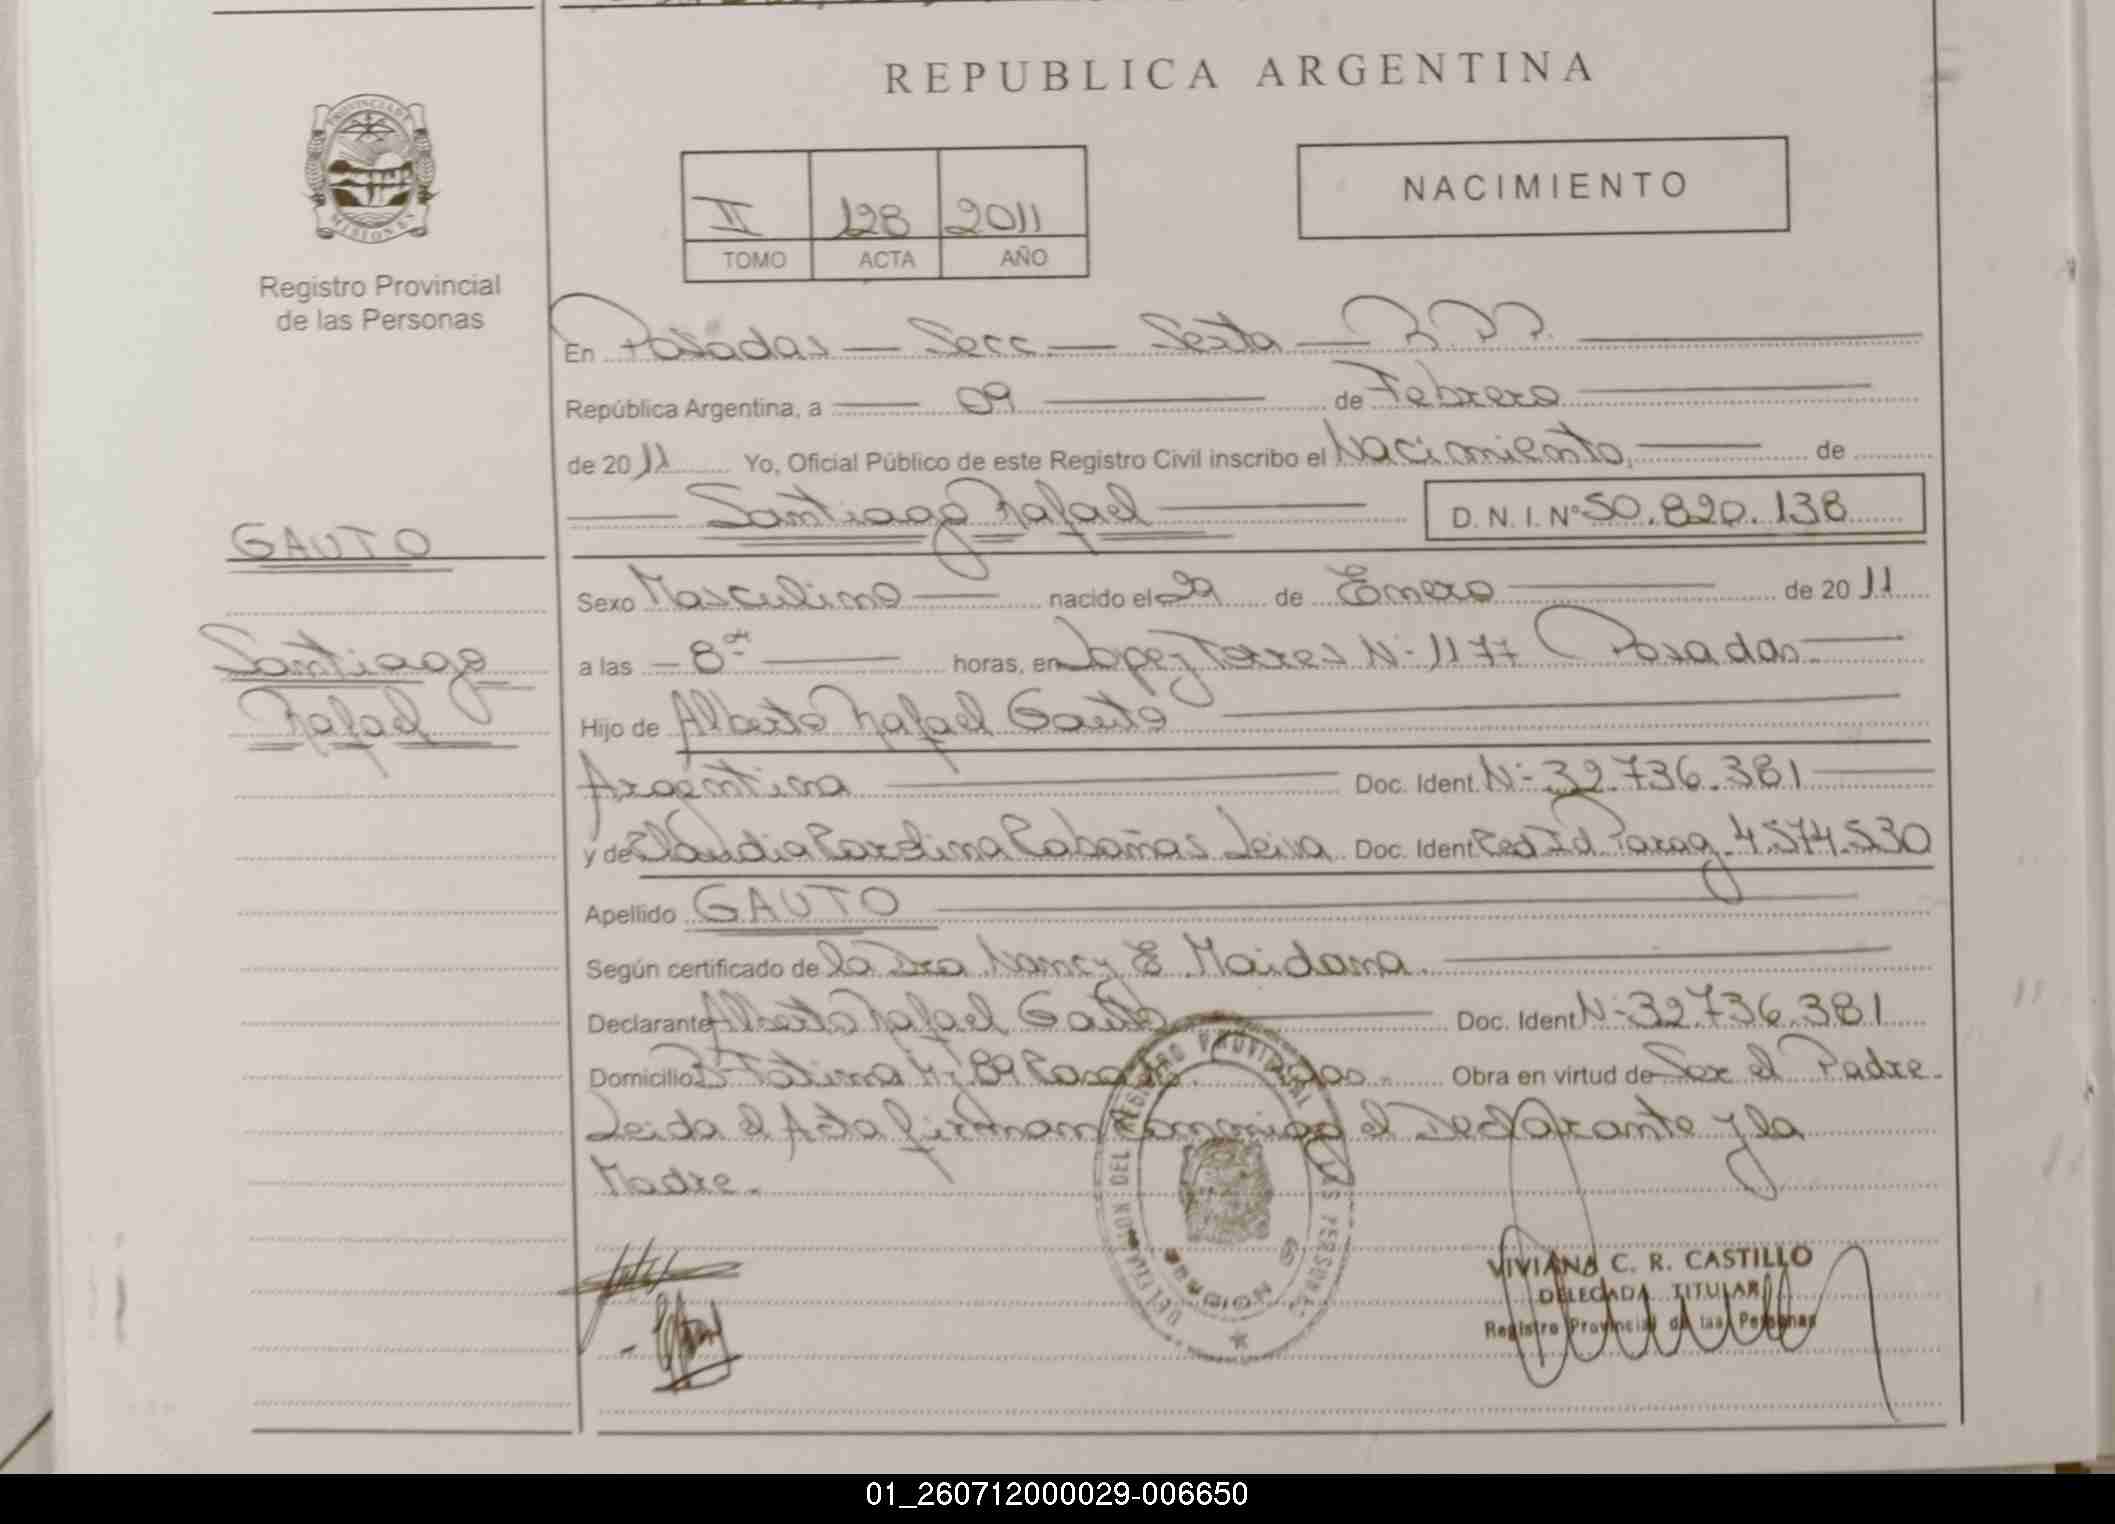 REPUBLICA ARGENTINA
PROVINCIA DE
MISIONES
Registro Provincial
de las Personas
NACIMIENTO
II 128 2011
TOMO ACTA AÑO
En Posadas — Secc. — Sexta — R.P.P.
República Argentina, a — 09 — de Febrero
de 2011 Yo, Oficial Público de este Registro Civil inscribo el Nacimiento, — de
— Santiago Rafael — D.N.I. Nº 50.820.138
GAUTO
Santiago
Rafael
Sexo Masculino — nacido el 29 de Enero — de 2011
a las — 8 — horas, en Lopez Torres N- 1177 Posadas. —
Hijo de Alberto Rafael Gauto —
Argentina — Doc. Ident. N- 32.736.381 —
y de Claudia Carolina Cabañas Leiva Doc. Ident Ced Id Parag. 4.574.530
Apellido GAUTO —
Según certificado de la Dra Nancy E. Maidana. —
Declarante Alberto Rafael Gauto — Doc. Ident N- 32.736.381
Domicilio Bº Fatima Obra en virtud de Ser el Padre.
Leida el Acta firman conmigo el Declarante y la
Madre.
DELEGACION DEL REGISTRO PROVINCIAL DE LAS PERSONAS
VIVIANA C. R. CASTILLO
DELEGADA TITULAR
Registro Provincial de las Personas
01_260712000029-006650